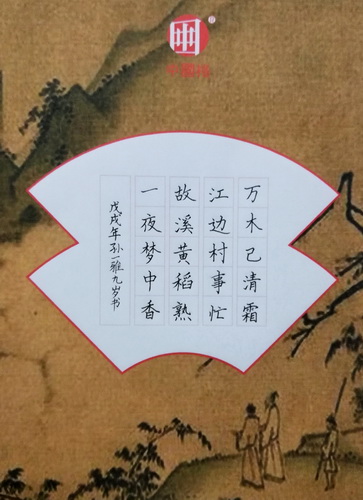 万木已清霜
江边村事忙
故溪黄稻熟
一夜梦中香
戊戌年孙一雅九岁书